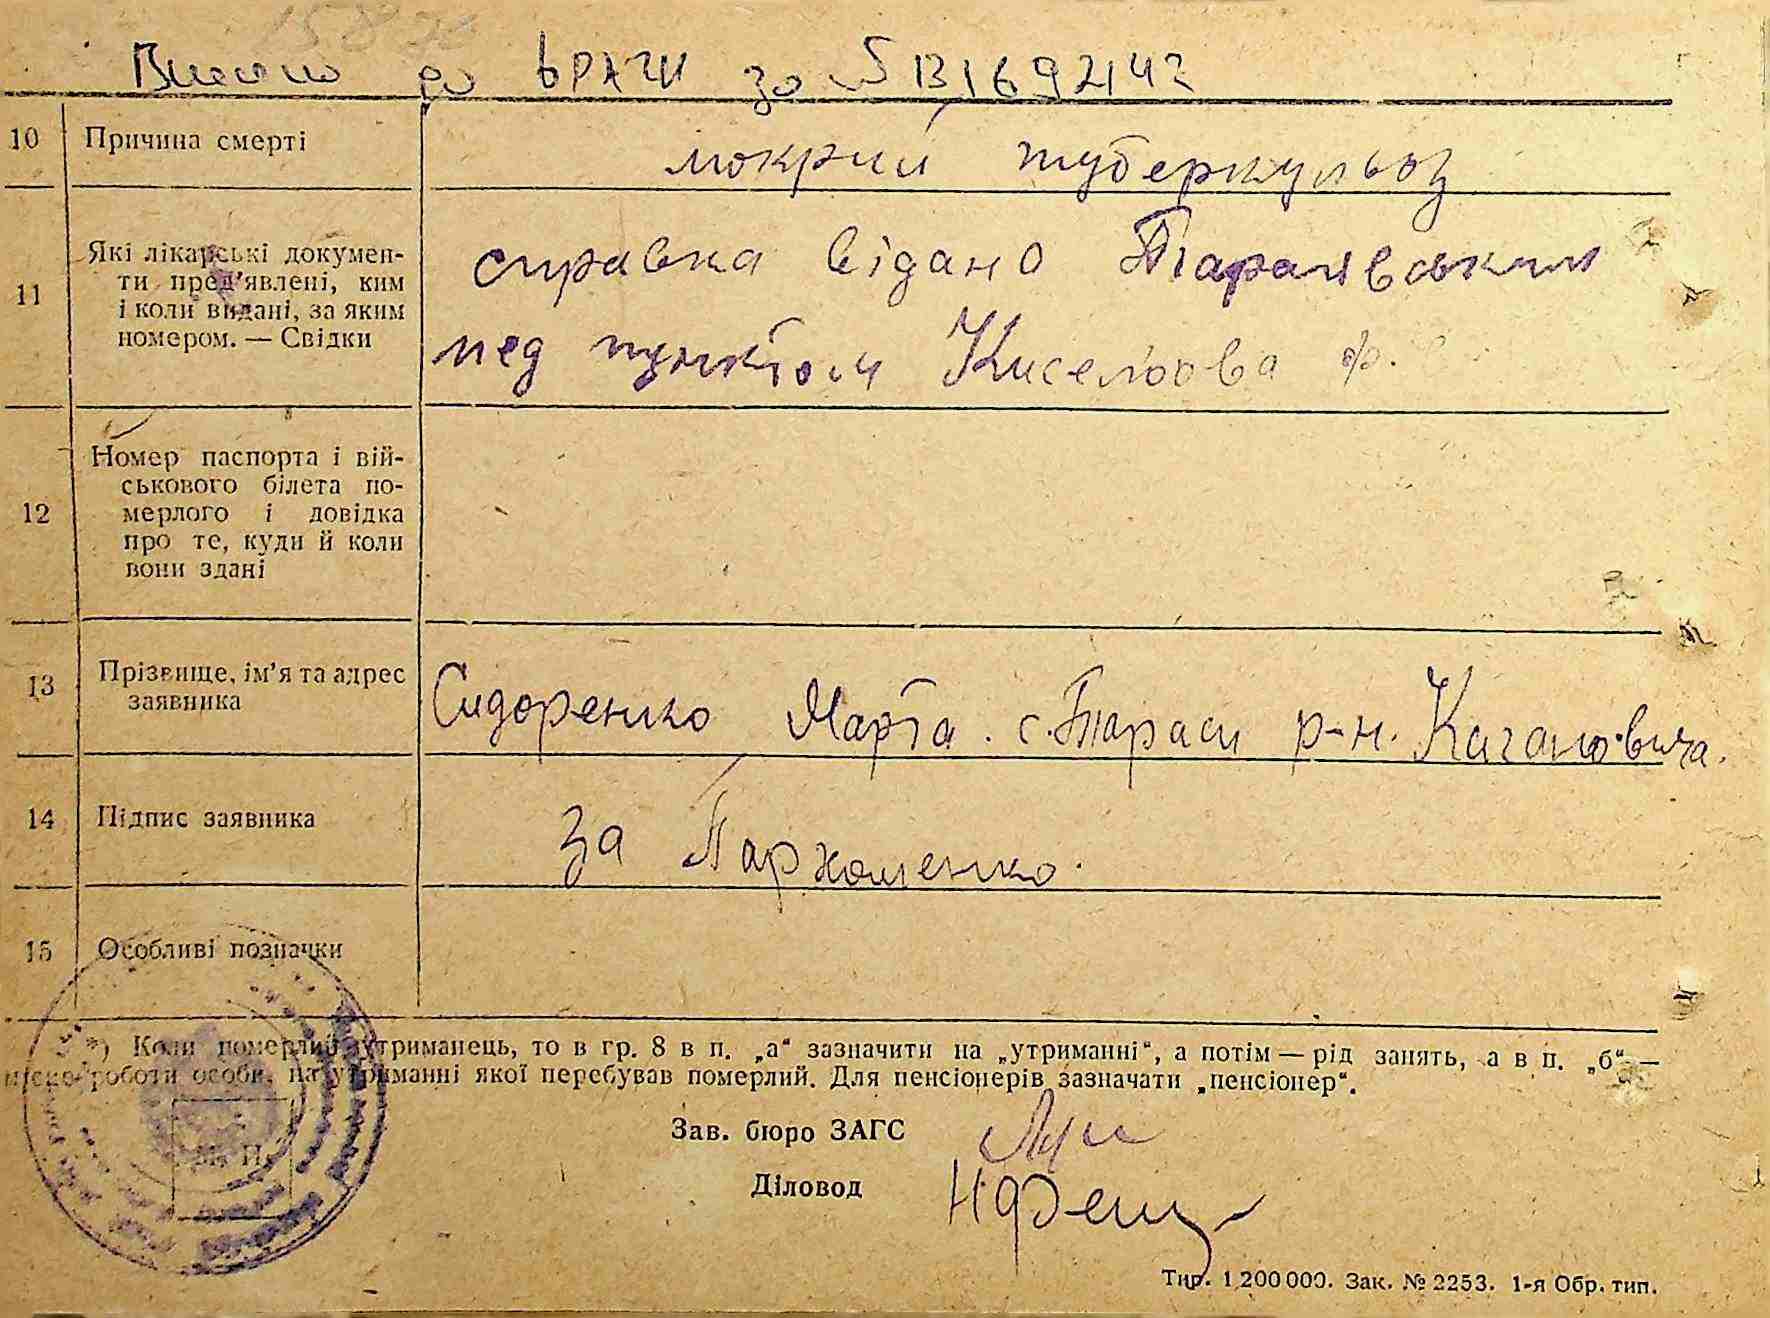 Внесено до ЬРАЦИ за № 131692142
10 Причина смерті мокрий туберкульоз
11 Які лікарські докумен-
ти пред'явлені, ким
і коли видані, за яким
номером. — Свідки
справка відано Тарасівським
мед пунктом Кисельова
12 Номер паспорта і вій-
ськового білета по-
мерлого і довідка
про те, куди й коли
вони здані
13 Прізвище, ім'я та адрес
заявника
Сидоренко Марта. с. Тараси р-н. Кагановича.
14 Підпис заявника за Пархоменко.
15 Особливі позначки
*) Коли померлий утриманець, то в гр. 8 в п. „а“ зазначити на „утриманні“, а потім — рід занять, а в п. „б“ —
місце роботи особи, на утриманні якої перебував померлий. Для пенсіонерів зазначати „пенсіонер“.
М. П.
Зав. бюро ЗАГС
Діловод
Тир. 1 200 000. Зак. № 2253. 1-я Обр. тип.